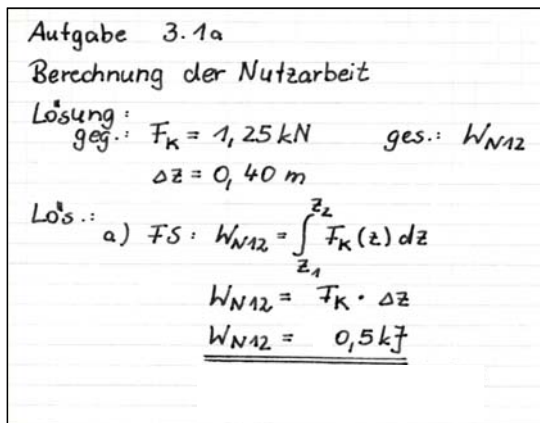 Aufgabe 3.1a
Berechnung der Nutzarbeit
Lösung:
geg.: F_K = 1,25 kN ges.: W_N12
Δz = 0,40 m
Lös.:
a) FS: W_N12 = ∫_{z_1}^{z_2} F_K(z) dz
W_N12 = F_K · Δz
W_N12 = 0,5 kJ